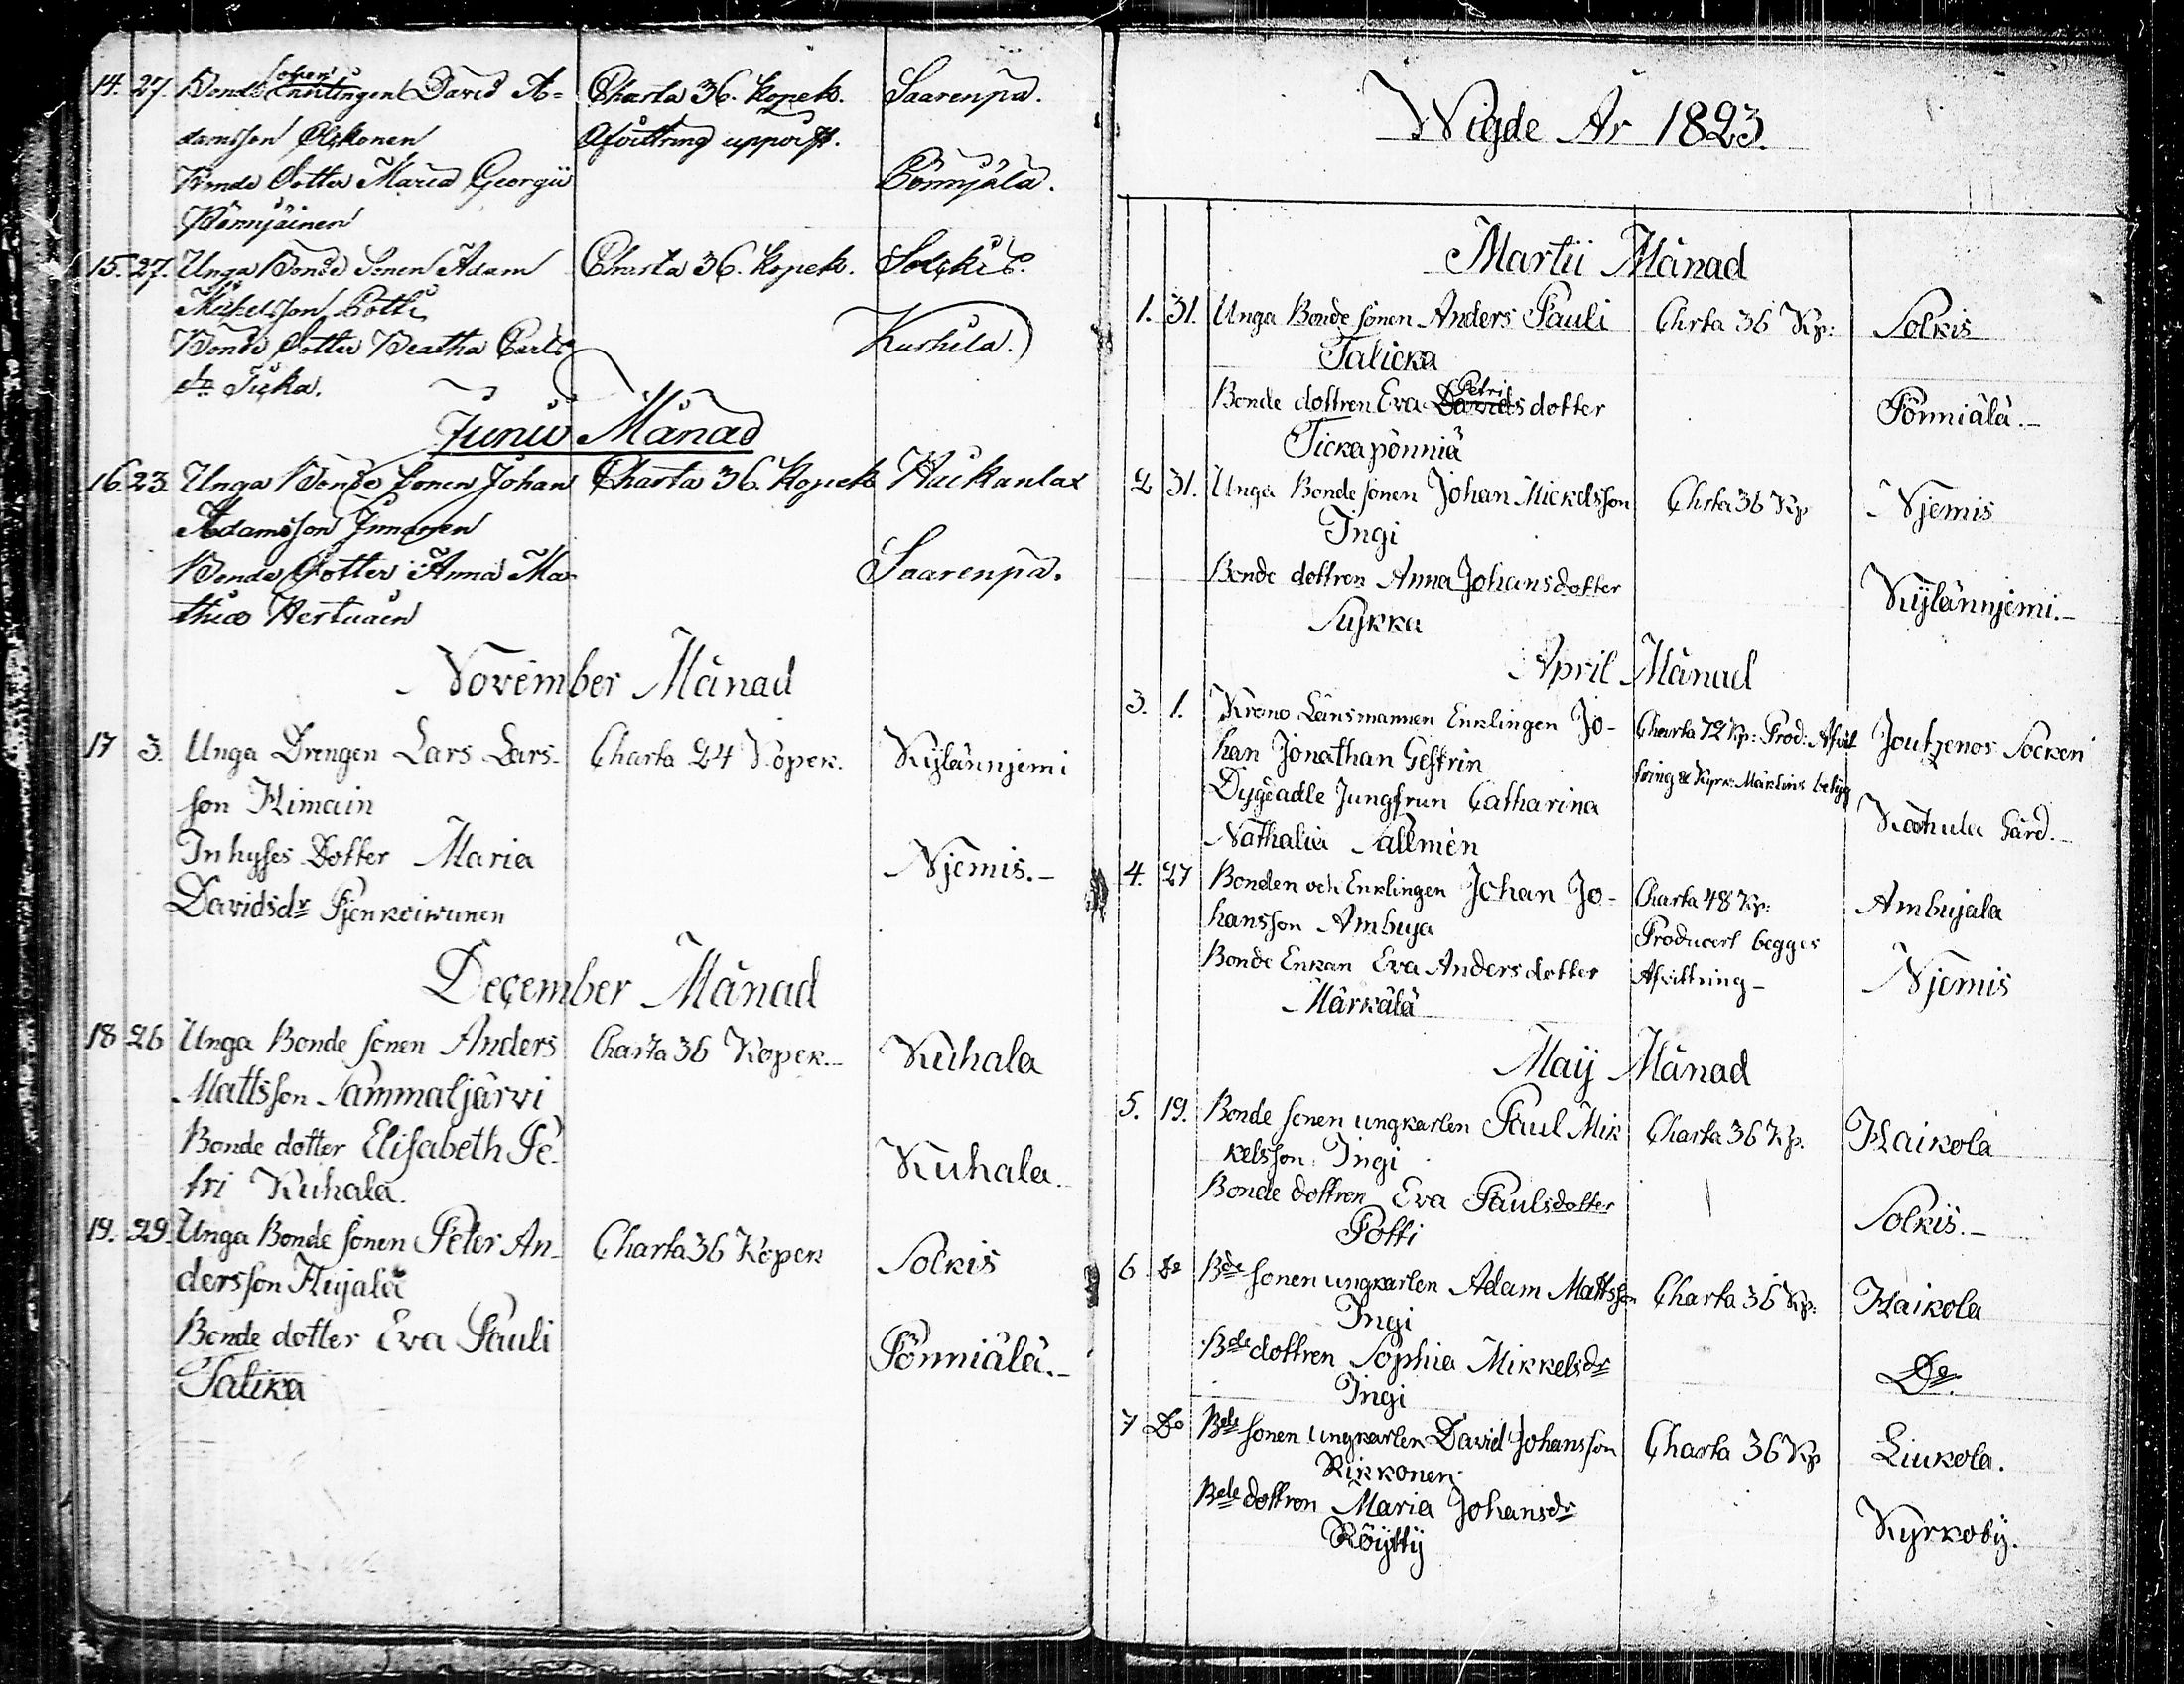 14. 27. Bonde Enklingen David A- Charta 36. Kopek. Saarenpä.
sonen
damsson Afvittring uppvist.
Bonde Dotter Maria Georgii Pönnjälä.
Pönnjäinen
15. 27. Unga Bonde Sonen Adam Charta 36. Kopek. Solkis.
Mickelsson Potti
Bonde Dotter Beatha Carls Kurhila.
dr Ticka.
Junii Månad
16. 23. Unga Bonde Sonen Johan Charta 36. Kopek Haikanlax
Adamsson Innanen
Bonde Dotter Anna Ma- Saarenpä.
thiæ Hertuain
November Månad
17 3. Unga Drengen Lars Lars- Charta 24 Kopek. Kylännjemi
son Himain
Inhyses Dotter Maria Njemis.-
Davidsdr
December Månad
18 26 Unga Bonde sonen Anders Charta 36 Kopek.- Kuhala
Mattsson Sammaljärvi
Bonde dotter Elisabeth Pe- Kuhala.-
tri Kuhala.
19. 29. Unga Bonde sonen Peter An- Charta 36 Kopek Solkis
dersson Hujala
Bonde dotter Eva Pauli Pönniälä.-
Talika
Wigde År 1823.
Martii Månad
1. 31. Unga Bonde sonen Anders Pauli Chrta 36 Kp: Solkis
Talicka
Petri
Bonde dottren Eva Davids dotter Pönniälä.-
Tickapönniä
2 31. Unga Bonde sonen Johan Mickelsson Chrta 36 Kp Njemis
Ingi
Bonde dottren Anna Johansdotter Kylännjemi.-
Sykka
April Månad
3. 1. Krono Länsmannen Enklingen Jo- Charta 72 Kp: Prod: Afvit Joutzenos Socken
han Jonathan Gestrin tring & Kyrk: Märkins betyg
Dygdädle Jungfrun Catharina Kathula Gård.-
Nathalia Sallmén
4. 27 Bonden och Enklingen Johan Jo- Charta 48 Kp: Ambujala
hansson Ambuja Producert begges
Bonde Enkan Eva Anders dotter Afvittring- Njemis
Märkälä
Maij Månad
5. 19. Bonde sonen ungkarlen Paul Mik Charta 36 Kp. Haikola
kelsson Ingi
Bonde dottren Eva Paulsdotter Solkis.-
Potti
6 Do Bde sonen ungkarlen Adam Mattsson Charta 36 Kp: Haikola
Ingi
Bde dottren Sophia Mikkelsdr Do
Ingi
7 Do Bde sonen ungkarlen David Johansson Charta 36 Kp Liukola.
Rikkonen
Bde dottren Maria Johansdr Kyrkoby.
Röytty